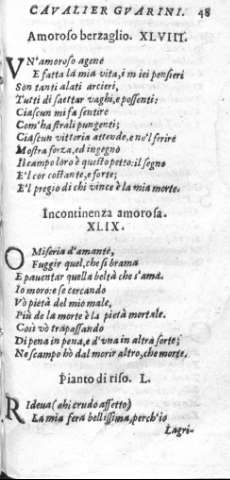 CAVALIER GVARINI. 48
Amoroso berzaglio. XLVIII.
VN'amoroso agone
E fatta la mia vita, i miei pensieri
Son tanti alati arcieri,
Tutti di saettar vaghi, e possenti:
Ciascun mi fa sentire
Com'ha strali pungenti;
Ciascun vittoria attende, e no'l ferire
Mostra forza, ed ingegno
Il campo loro è questo petto: il segno
E'l cor costante, e forte;
E'l pregio di chi vince è la mia morte.
Incontinenza amorosa.
XLIX.
O Miseria d'amante,
Fuggir quel, che si brama
E pauentar quella beltà che s'ama.
Io moro: e se cercando
Vò pietà del mio male,
Più de la morte è la pietà mortale.
Così vò trapassando
Di pena in pena, e d'vna in altra sorte;
Ne scampo hò dal morir altro, che morte.
Pianto di riso. L.
RIdeua (ahi crudo affetto)
La mia fera bellissima, perch'io
Lagri-